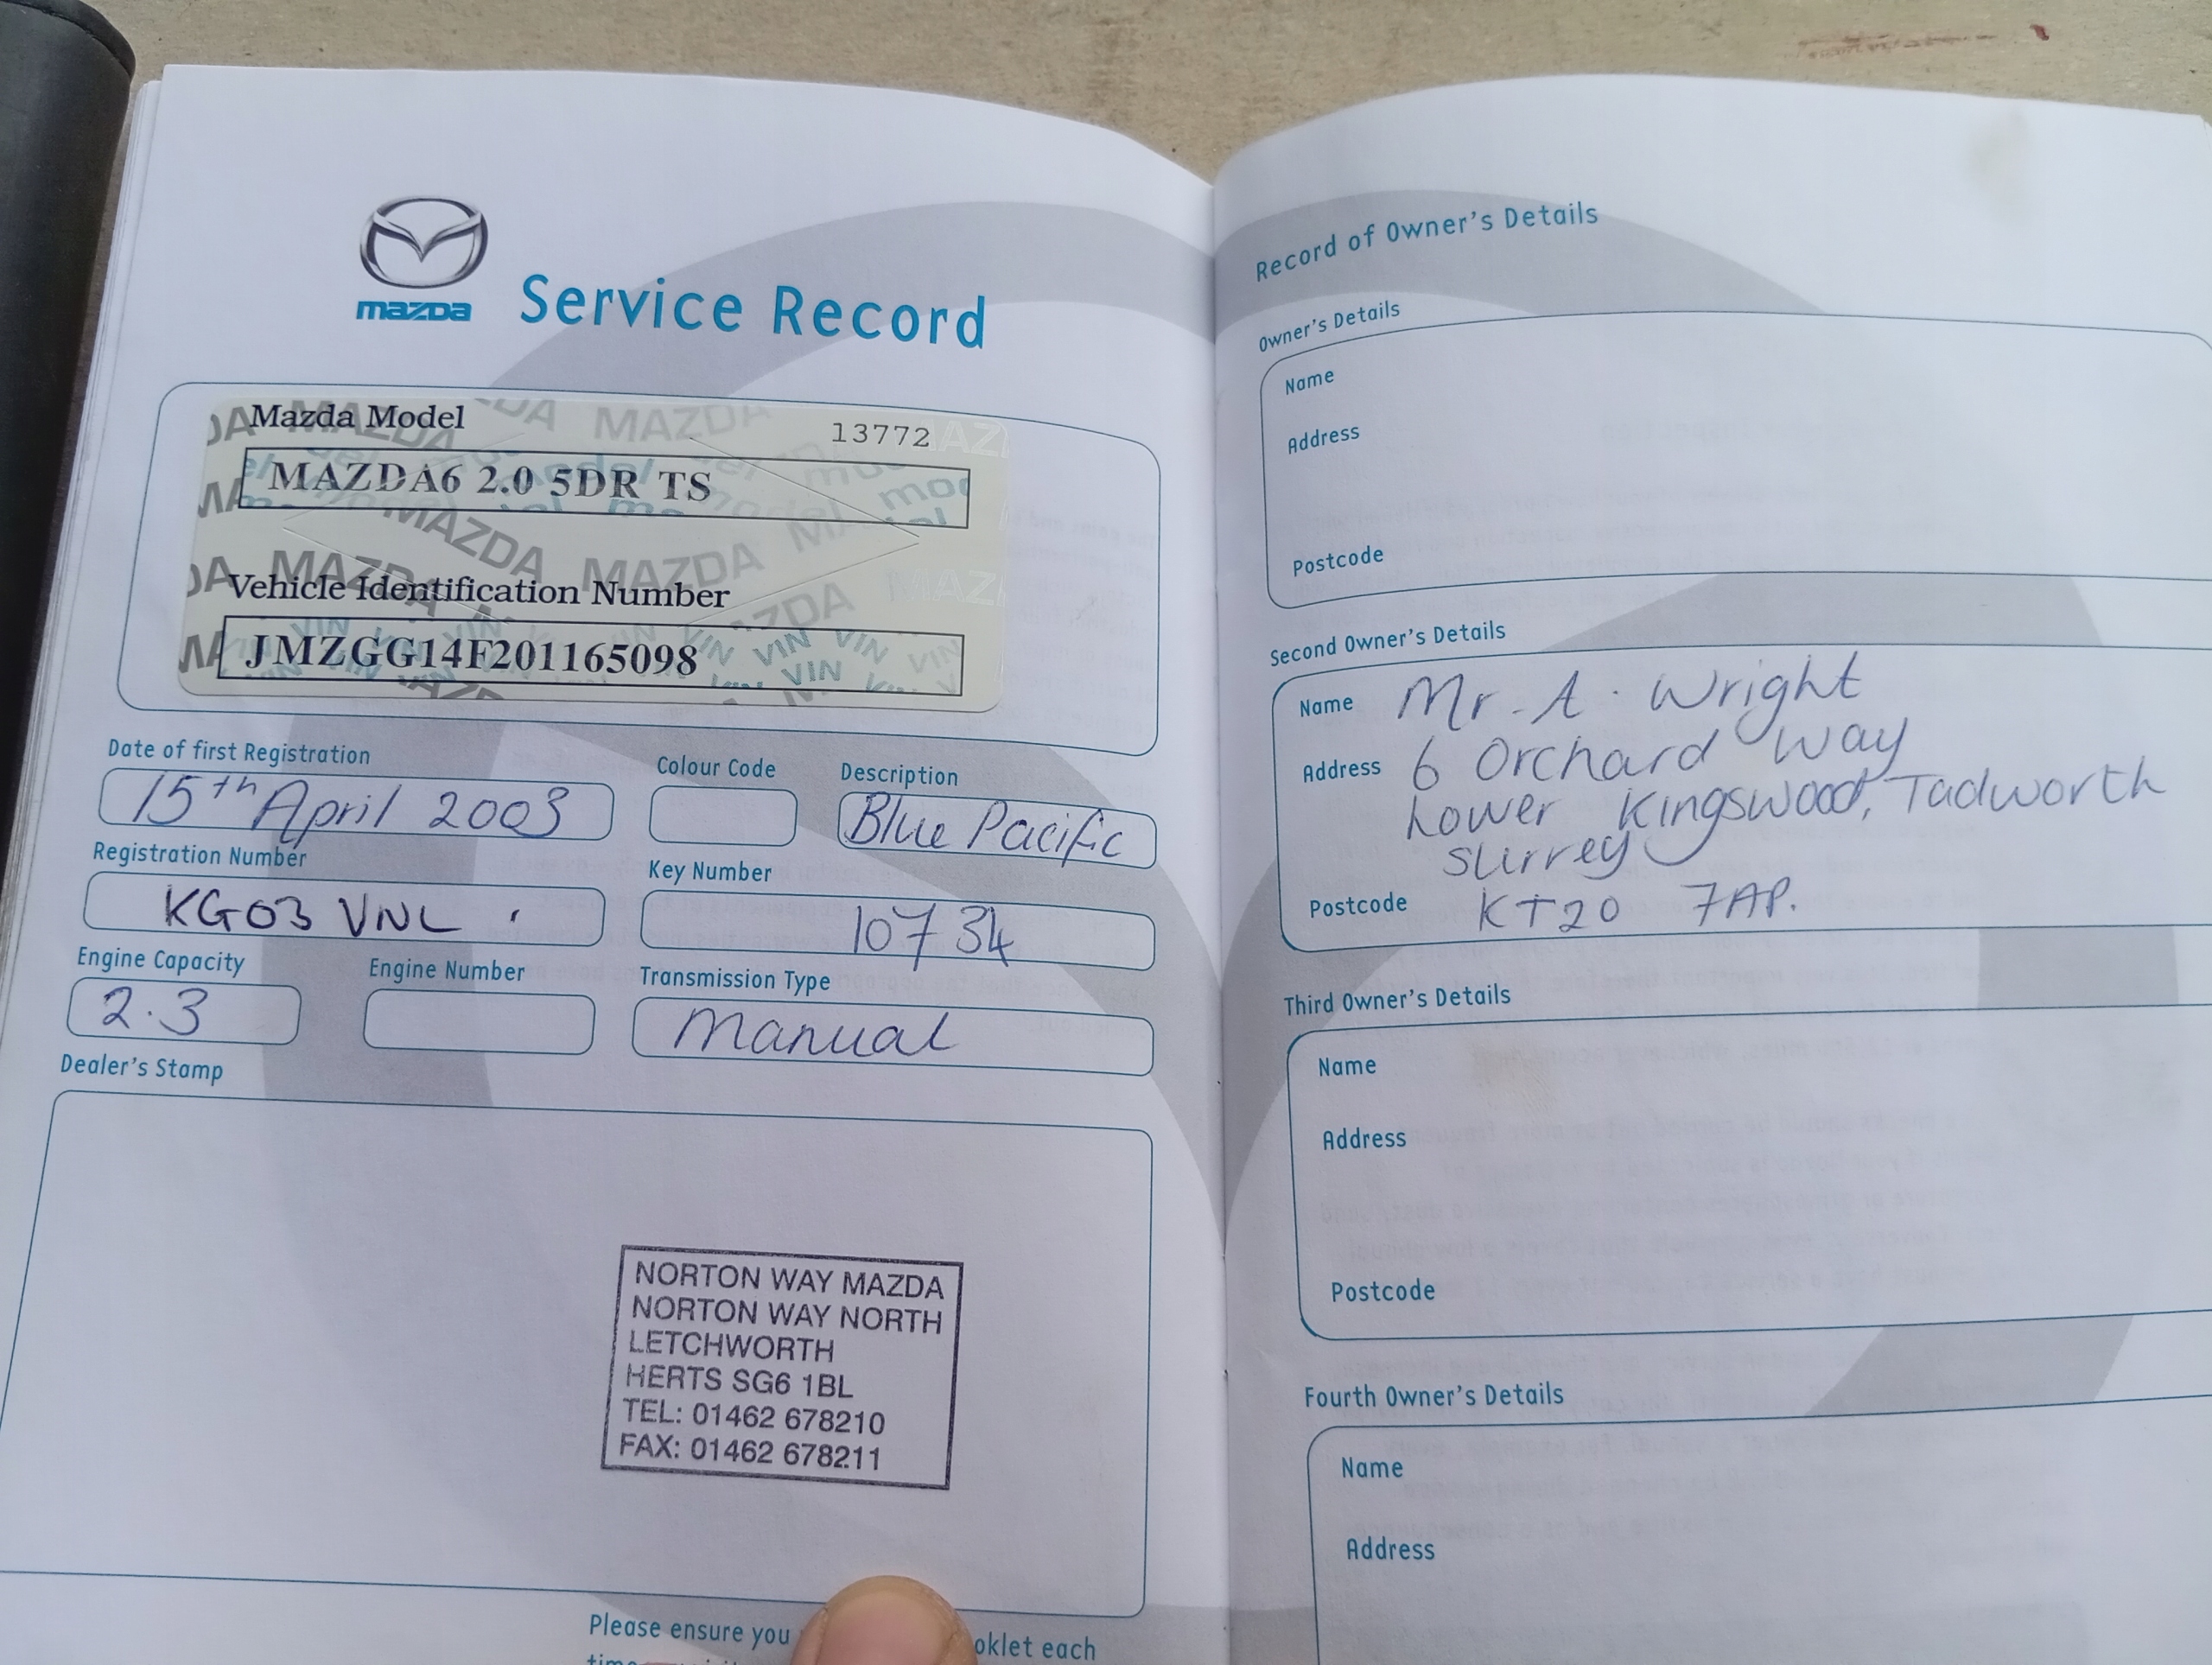 mazda
Service Record
Mazda Model
13772
MAZDA6 2.0 5DR TS
Vehicle Identification Number
JMZGG14F201165098
Date of first Registration
15th April 2003
Colour Code
Description
Blue Pacific
Registration Number
KG03 VNL
Key Number
10734
Engine Capacity
2.3
Engine Number
Transmission Type
Manual
Dealer's Stamp
NORTON WAY MAZDA
NORTON WAY NORTH
LETCHWORTH
HERTS SG6 1BL
TEL: 01462 678210
FAX: 01462 678211
Please ensure you
each
Record of Owner's Details
Owner's Details
Name
Address
Postcode
Second Owner's Details
Name Mr. A. Wright
Address 6 Orchard Way
Lower Kingswood, Tadworth
Surrey
Postcode KT20 7AP.
Third Owner's Details
Name
Address
Postcode
Fourth Owner's Details
Name
Address